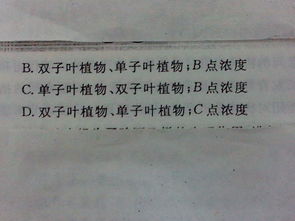 B. 双子叶植物、单子叶植物;B 点浓度
C. 单子叶植物、双子叶植物;B 点浓度
D. 双子叶植物、单子叶植物;C 点浓度